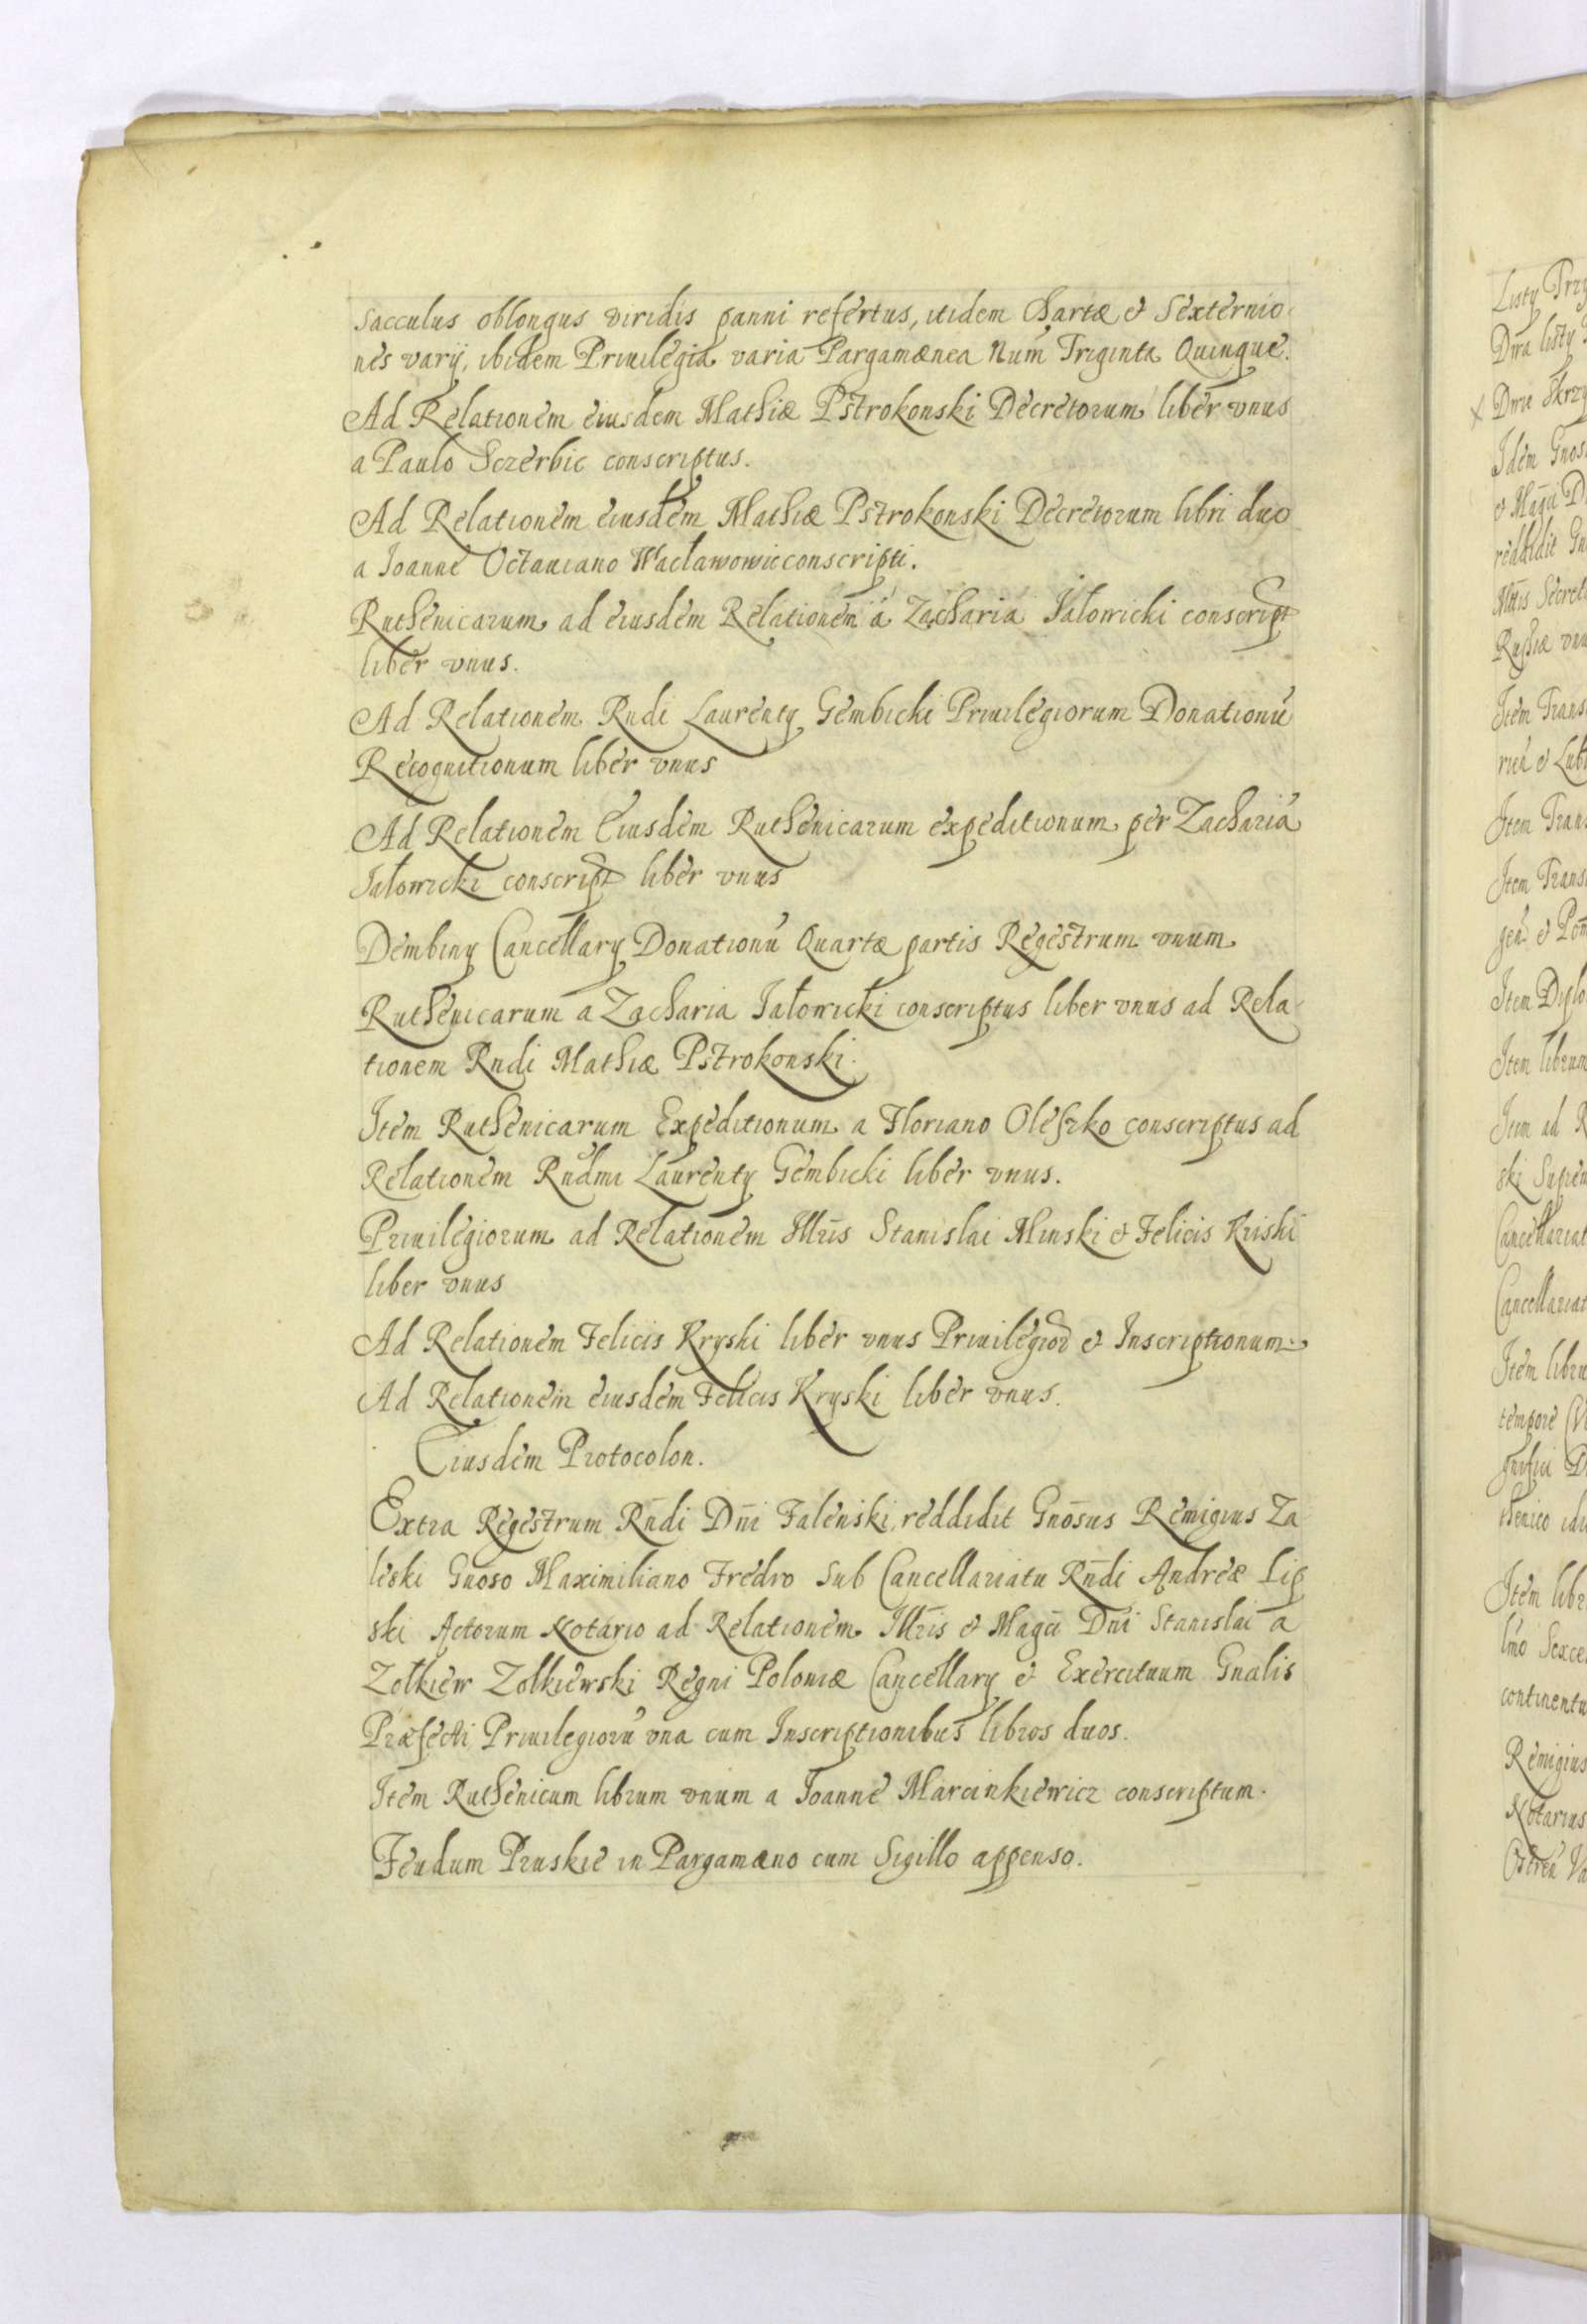 Sacculus oblongus viridis panni refertus, itidem Chartæ et Sexternio-
nes varij, ibidem Priuilegia varia Pargamænea Num̄ Triginta Quinque.
Ad Relationem eiusdem Mathiæ Pstrokonski Decretorum liber vnus
a Paulo Sczerbic conscriptus.
Ad Relationem eiusdem Mathiæ Pstrokonski Decretorum libri duo
a Joanne Octauiano Wacławowic conscripti.
Ruthenicarum ad eiusdem Relationem á Zacharia Jałowicki conscript
liber vnus.
Ad Relationem Rndi Laurenty Gembicki Priuilegiorum Donationū
Recognitionum liber vnus
Ad Relationem Eiusdem Ruthenicarum expeditionum per Zachariā
Jałowicki conscript liber vnus
Dembiny Cancellary Donationū Quartæ partis Regestrum vnum
Ruthenicarum a Zacharia Jałowicki conscriptus liber vnus ad Rela-
tionem Rndi Mathiæ Pstrokonski.
Item Ruthenicarum Expeditionum a Floriano Oleszko conscriptus ad
Relationem Rndmi Laurenty Gembicki liber vnus.
Priuilegiorum ad Relationem Illris Stanislai Minski et Felicis Kriski
liber vnus
Ad Relationem Felicis Kryski liber vnus Priuilegior et Inscriptionum.
Ad Relationem eiusdem Felicis Kryski liber vnus.
Eiusdem Protocolon.
Extra Regestrum Rn̄di Dn̄i Falenski, reddidit Gnōsus Remigius Za
leski Gnoso Maximiliano Fredro Sub Cancellariatu Rn̄di Andreæ Lip
ski Actorum Notario ad Relationem Illris et Magci Dni Stanislai a
Zołkiew Zołkiewski Regni Poloniæ Cancellary et Exercituum Gnalis
Præfecti Priuilegiorū vna cum Inscriptionibus libros duos.
Item Ruthenicum librum vnum a Joanne Marcinkiewicz conscriptum.
Feudum Pruskie in Pargamæno cum Sigillo appenso.